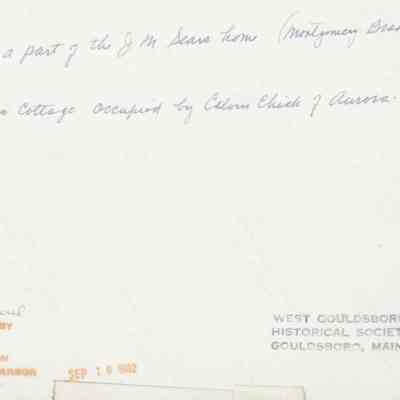 a part of the J M Sears home (Montgomery
Cottage occupied by Calvin Chick of Aurora.
BY
WEST GOULDSBOR
HISTORICAL SOCIET
GOULDSBORO, MAIN
ARBOR
SEP 1 9 1982